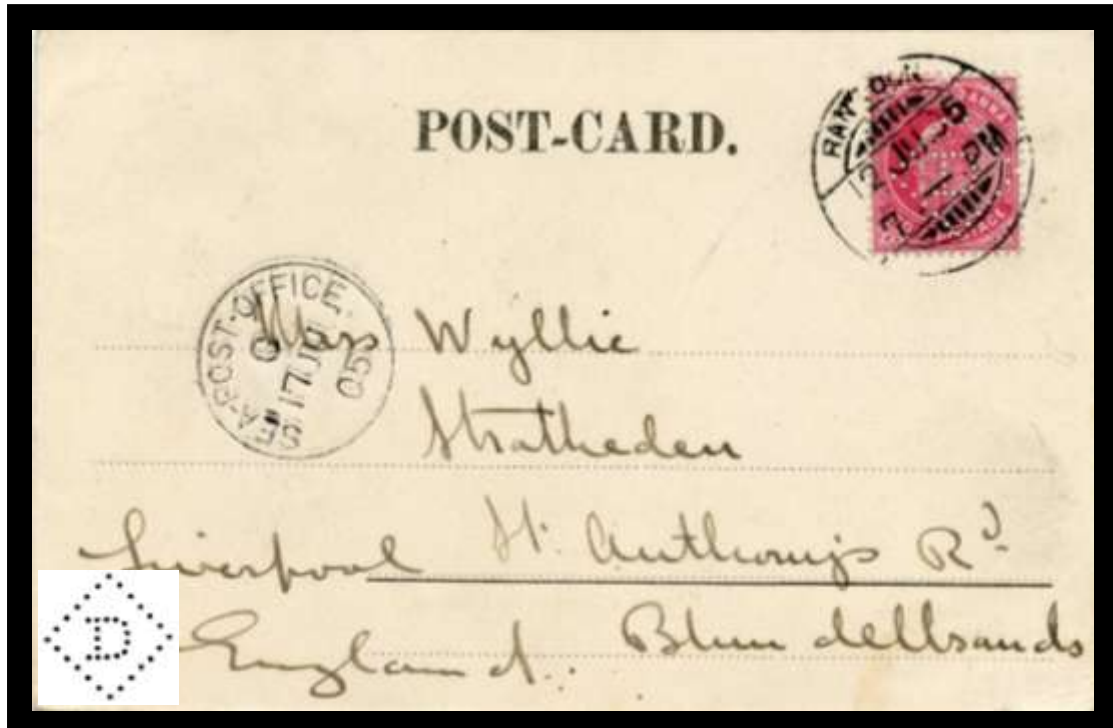 POST-CARD.
RANGOON
12 JU 05
1 PM
ANNA
SEA-POST-OFFICE
C
17 JU
05
Miss Wyllie
Stratheden
St. Anthony's Rd
Blundellsands
Liverpool
England.
D